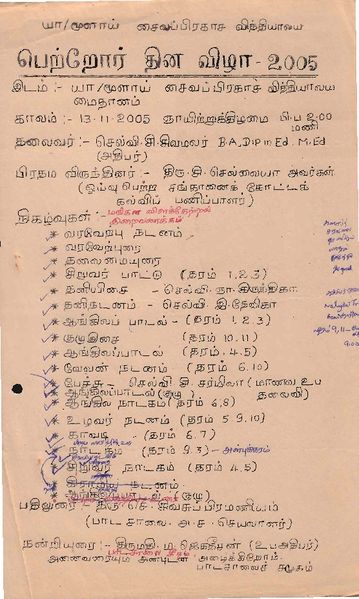 யா/மூளாய் சைவப்பிரகாச வித்தியாலய
பெற்றோர் தின விழா - 2005
இடம் :- யா/மூளாய் சைவப்பிரகாச வித்தியாலய
மைதானம்
காலம் :- 13-11-2005 ஞாயிற்றுக்கிழமை பி.ப 2.00
மணி
தலைவர் :- செல்வி.சி.சிவமலர் B.A, DIP in Ed. M.Ed
(அதிபர்)
பிரதம விருந்தினர் :- திரு.சி.செல்லையா அவர்கள்
(ஓய்வு பெற்ற சங்கானைக் கோட்டக்
கல்விப் பணிப்பாளர்)
நிகழ்வுகள் :- மங்கள விளக்கேற்றல்
* வரவேற்பு நடனம்
* வரவேற்புரை
* தலைமையுரை
* சிறுவர் பாட்டு (தரம் 1,2,3)
* தனியிசை - செல்வி.நா.நிருந்திகா
* தனிநடனம் - செல்வி.இ.தேவிதா
* ஆங்கில பாடல் - (தரம் 1,2,3)
* குழுஇசை (தரம் 10,11)
* ஆங்கிலப்பாடல் (தரம் 4,5)
* வேலன் நடனம் (தரம் 6,10)
* பேச்சு - செல்வி.சி.சர்மிலா (மாணவ உப
தலைவி)
* ஆங்கிலப்பாடல் (குழு)
* ஆங்கில நாடகம் (தரம் 6,8)
* உழவர் நடனம் (தரம் 5,9,10)
* காவடி (தரம் 6,7)
* நாடகம் (தரம் 9,3)
* சிறுவர் நாடகம் (தரம் 4,5)
* கிராமிய நடனம்
பதிலுரை :- திரு.செ.சிவசுப்பிரமணியம்
(பாடசாலை அ.ச. செயலாளர்)
நன்றியுரை :- திருமதி.ம.ஜெகதீசன் (உபஅதிபர்)
அனைவரையும் அன்புடன் அழைக்கிறோம்.
பாடசாலைச் சமூகம்